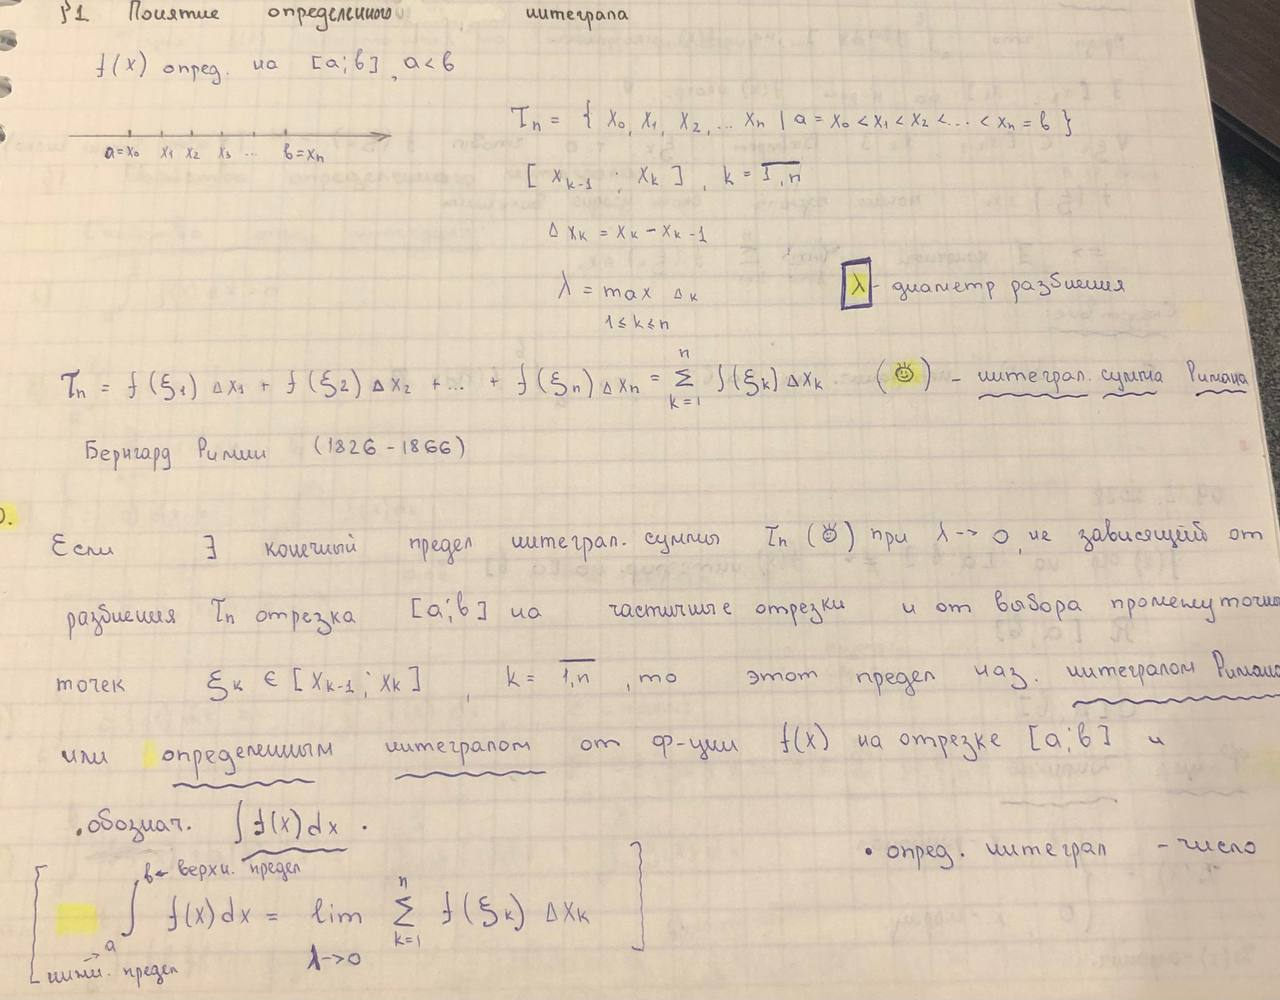 §1 Понятие определенного интеграла
f(x) опред. на [a;b], a<b
a=x₀ x₁ x₂ x₃ ... b=xₙ
τₙ = { x₀, x₁, x₂, ... xₙ | a = x₀ < x₁ < x₂ < ... < xₙ = b }
[ xₖ₋₁ ; xₖ ], k = 1,n
Δxₖ = xₖ - xₖ₋₁
λ = max Δₖ
1≤k≤n
λ - диаметр разбиения
τₙ = f(ξ₁)Δx₁ + f(ξ₂)Δx₂ + ... + f(ξₙ)Δxₙ = ∑ₖ₌₁ⁿ f(ξₖ)Δxₖ (☺) - интеграл. сумма Римана
Бернгард Риман (1826-1866)
Если ∃ конечный предел интеграл. суммы τₙ (☺) при λ→0, не зависящей от
разбиения τₙ отрезка [a;b] на частичные отрезки и от выбора промежуточн
точек ξₖ ∈ [xₖ₋₁; xₖ], k = 1,n, то этот предел наз. интегралом Римана
или определенным интегралом от ф-ции f(x) на отрезке [a;b] и
.обознач. ∫f(x)dx.
b← верхн. предел
• опред. интеграл - число
∫ f(x)dx = lim ∑ₖ₌₁ⁿ f(ξₖ) Δxₖ
→a
λ→0
нижн. предел